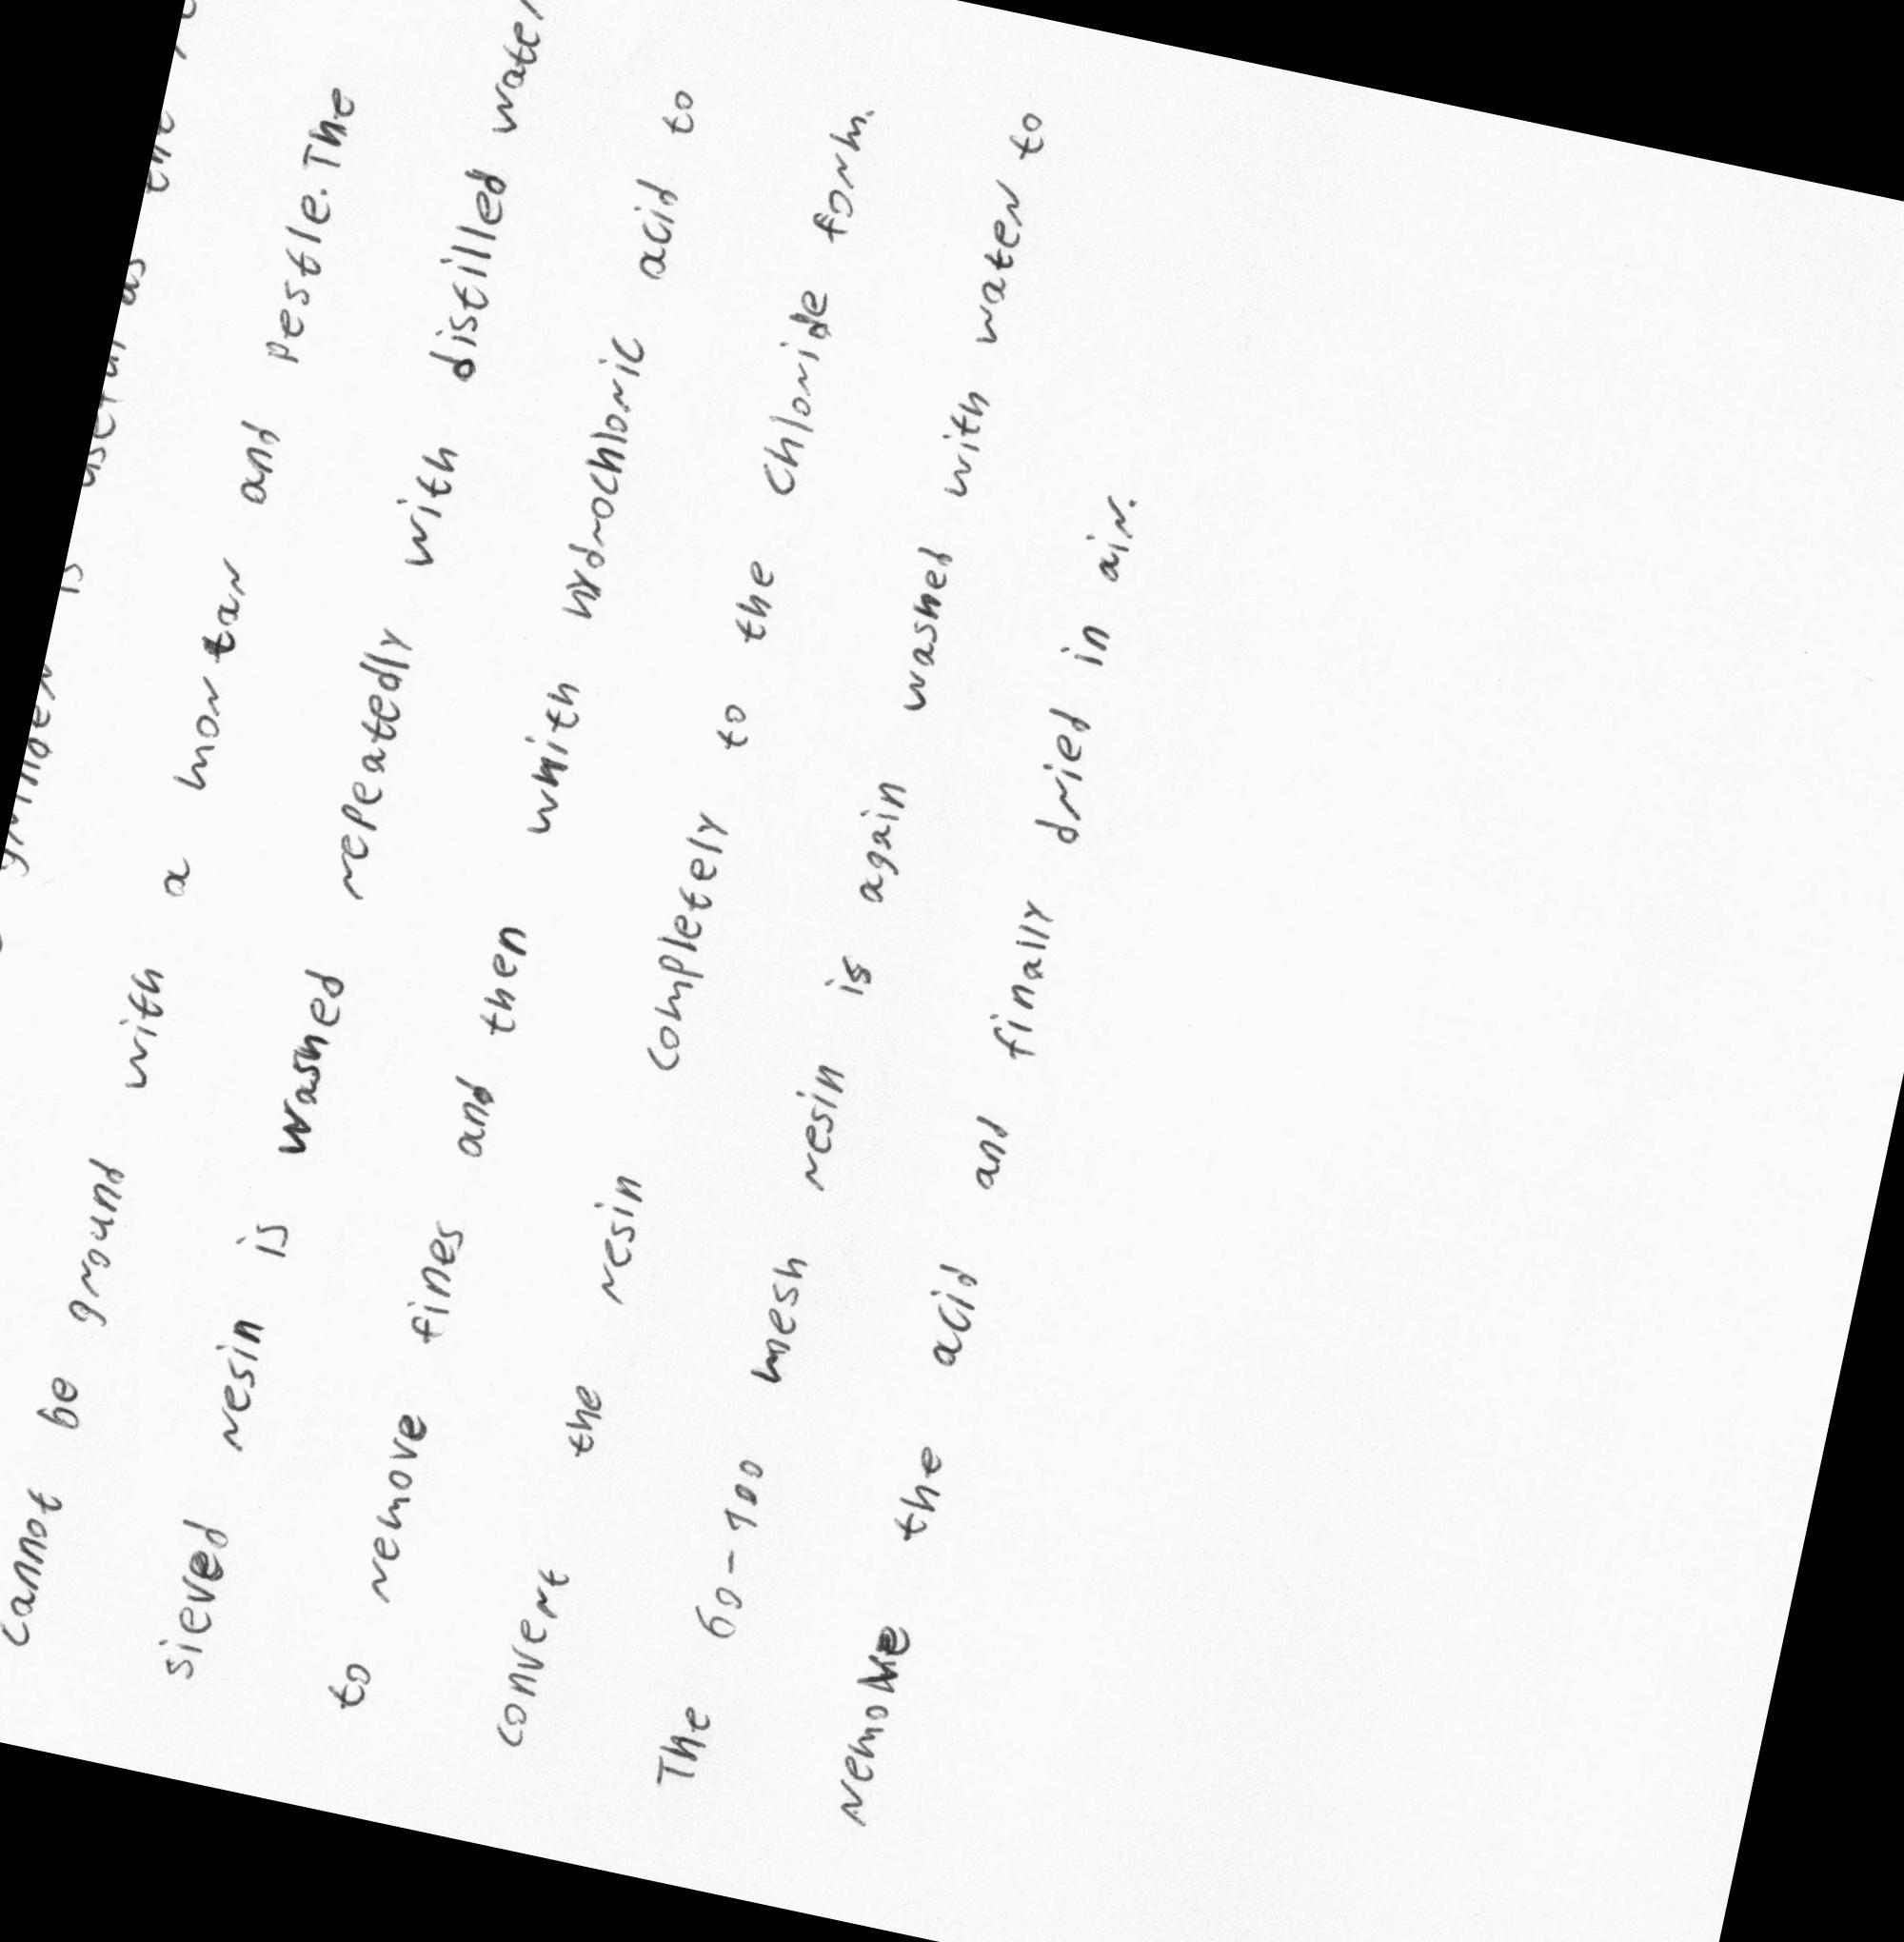 grinder is useful as the
cannot be ground with a mortar and pestle. The
sieved resin is washed repeatedly with distilled water
to remove fines and then with hydrochloric acid to
convert the resin completely to the chloride form.
The 60-100 mesh resin is again washed with water to
remove the acid and finally dried in air.